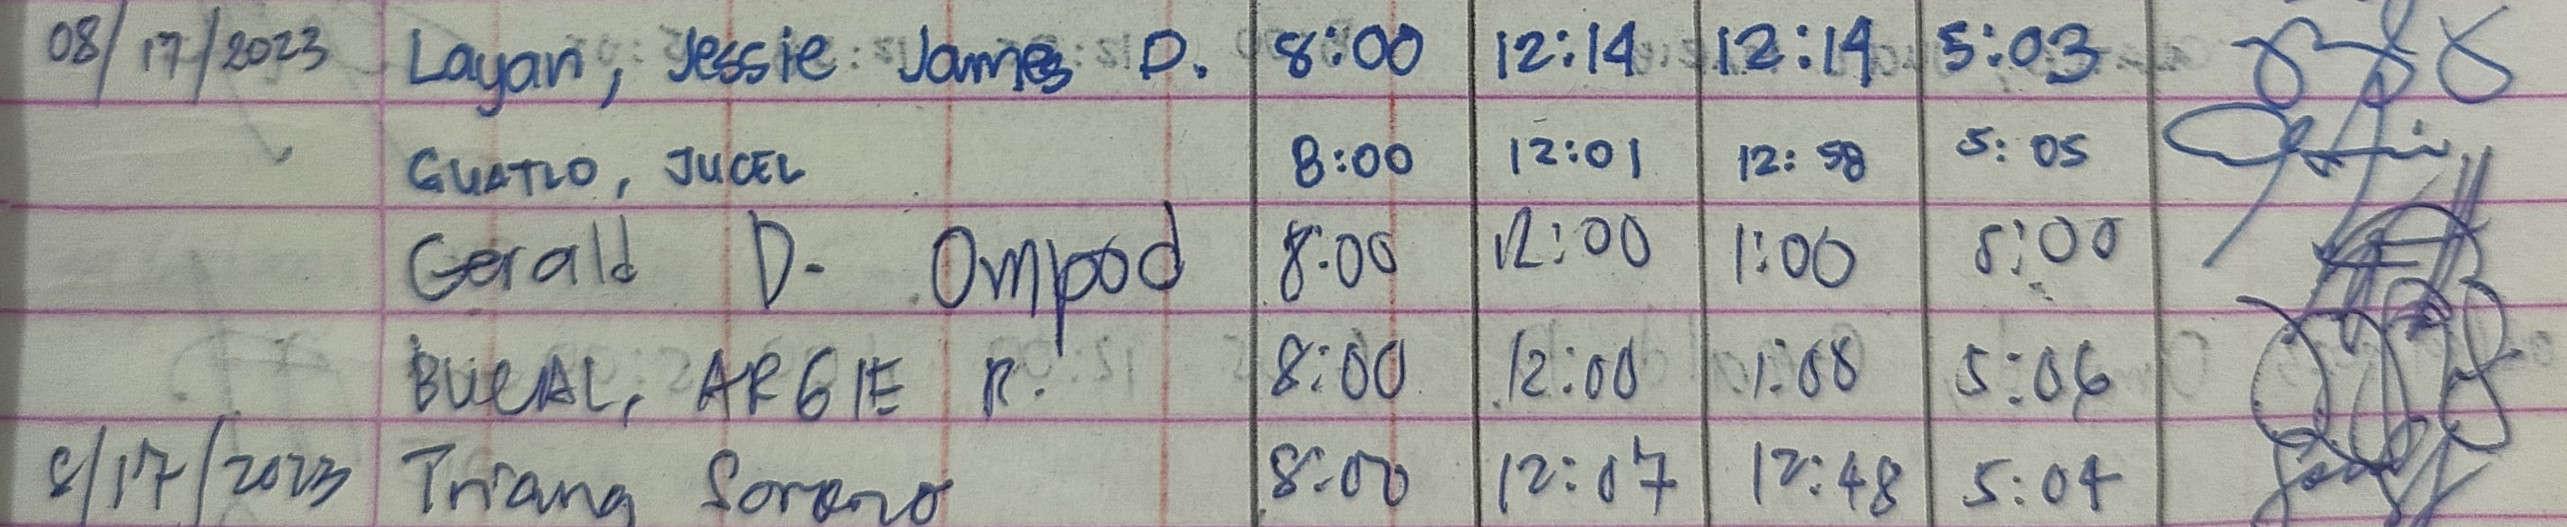 08/17/2023 Layan, Jessie James D. 8:00 12:14 12:14 5:03
GUATLO, JUCEL 8:00 12:01 12:58 5:05
Gerald D. Ompod 8:00 12:00 1:00 5:00
BUCAL, ARGIE R. 8:00 12:00 1:08 5:06
8/17/2023 Triang Sorono 8:00 12:07 12:48 5:04